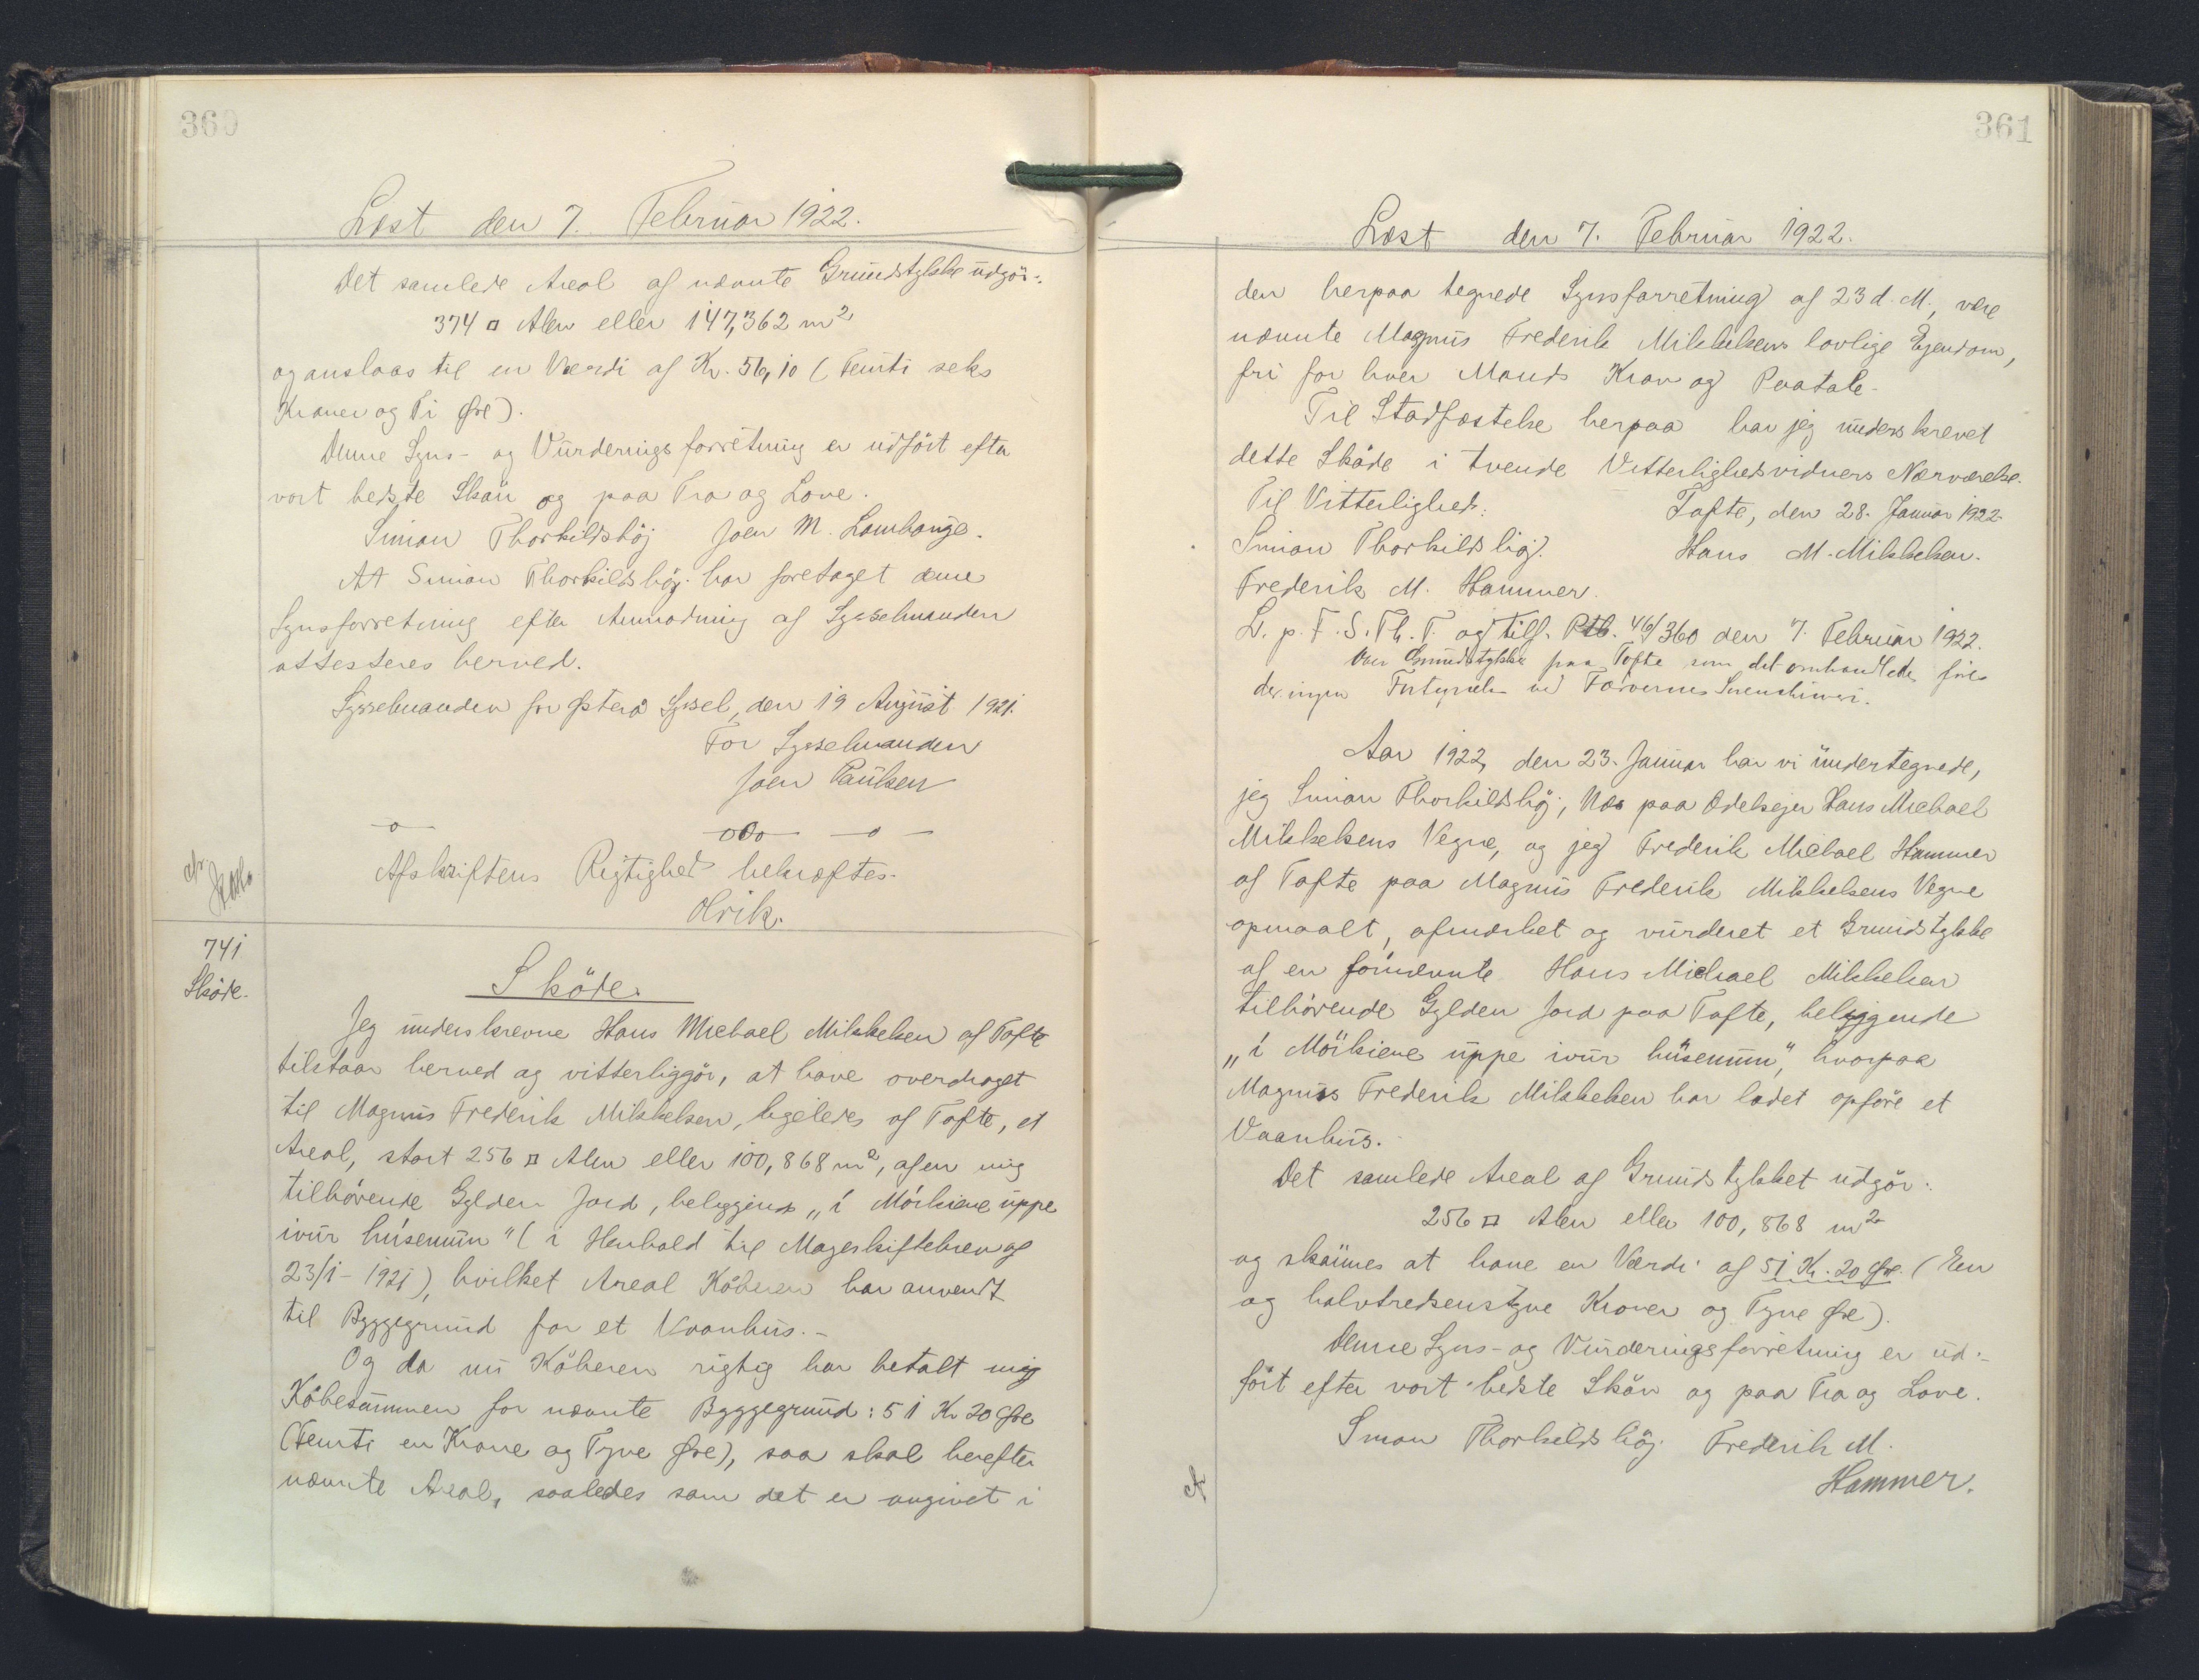 360
Læst den 7. Februar 1922.
Det samlede Areal af nævnte Grundstykke udgör:
374 □ Alen eller 147,362 m²
og anslaas til en Værdi af Kr. 56,10 (Femti seks
Kroner og Ti Øre).
Denne Syns- og Vurderingsforretning er udfört efter
vort bedste Skön og paa Tro og Love.
Simon Thorkildshöj Joen M. Lamhauge.
At Simon Thorkildshöj har foretaget denne
Synsforretning efter Anmodning af Sysselmanden
attesteres herved.
Sysselmanden for Østerö Syssel, den 19 August 1921.
For Sysselmanden
Joen Paulsen
—o— —oOo— —o—
Afskriftens Rigtighed bekræftes.
Olrik.
741
Sköde.
Sköde.
Jeg underskrevne Hans Michael Mikkelsen af Tofte
tilstaar herved og vitterliggör, at have overdraget
til Magnus Frederik Mikkelsen, ligeledes af Tofte, et
Areal, stort 256 □ Alen eller 100,868 m², af en mig
tilhörende Gylden Jord, beliggende „í Mörkiene uppe
ivur húsenum" (i Henhold til Mageskiftebrev af
23/1-1921), hvilket Areal Köberen har anvendt
til Byggegrund for et Vaanhus.-
Og da nu Köberen rigtig har betalt mig
Köbesummen for nævnte Byggegrund: 51 Kr 20 Øre
(Femti en Krone og Tyve Øre), saa skal herefter
nævnte Areal, saaledes som det er angivet i
361
Læst den 7. Februar 1922.
den herpaa tegnede Synsforretning af 23 d. M., være
nævnte Magnus Frederik Mikkelsens lovlige Ejendom,
fri for hver Mands Krav og Paatale.
Til Stadfæstelse herpaa har jeg underskrevet
dette Sköde i tvende Vitterlighedsvidners Nærværelse.
Til Vitterlighed: Tofte, den 28. Januar 1922.
Simon Thorkildshöj. Hans M. Mikkelsen.
Frederik M. Hammer.
L. p. F. S. Th. T. og tilf. Ptb. 46/360 den 7. Februar 1922.
Over Grundstykke paa Tofte som det omhandlede föres
der ingen Fortegnelse ved Færøernes Sorenskriveri.
Aar 1922, den 23. Januar har vi undertegnede,
jeg Simon Thorkildshöj, Næs paa Odelsejer Hans Michael
Mikkelsens Vegne, og jeg Frederik Michael Hammer
af Tofte paa Magnus Frederik Mikkelsens Vegne
opmaalt, afmærket og vurderet et Grundstykke
af en fornævnte Hans Michael Mikkelsen
tilhörende Gylden Jord paa Tofte, beliggende
„í Mörkiene uppe ivur húsenum", hvorpaa
Magnus Frederik Mikkelsen har ladet opföre et
Vaanhus.
Det samlede Areal af Grundstykket udgör:
256 □ Alen eller 100,868 m²
og skönnes at have en Værdi af 51 Kr. 20 Øre. (En
og halvtredsenstyve Kroner og Tyve Øre).
Denne Syns- og Vurderingsforretning er ud-
fört efter vort bedste Skön og paa Tro og Love.
Simon Thorkildshöj. Frederik M.
Hammer.